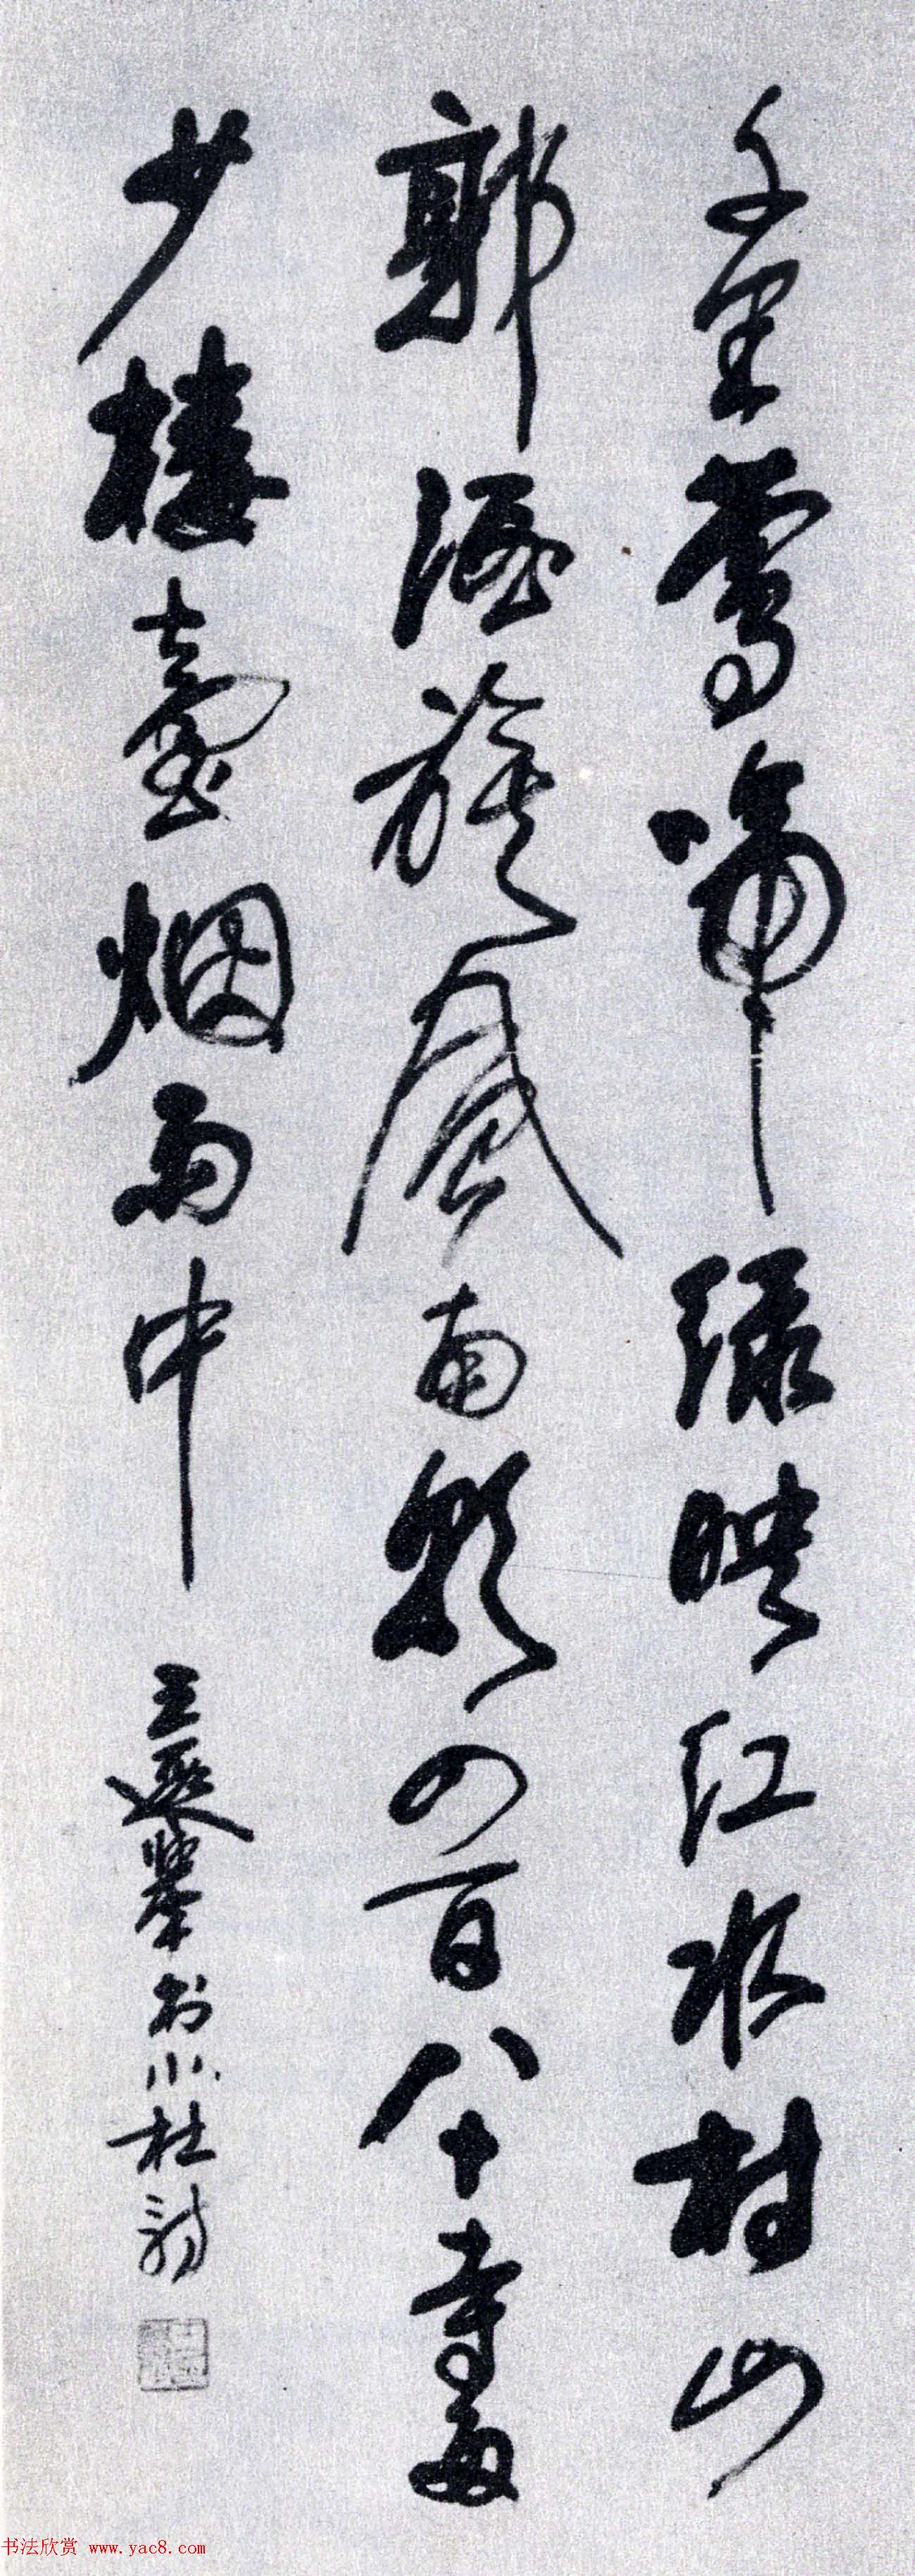 千里鶯啼绿映红水村山
郭酒旗風南朝四百八十寺多
少楼臺烟雨中
王遐举书小杜诗
书法欣赏 www.yac8.com